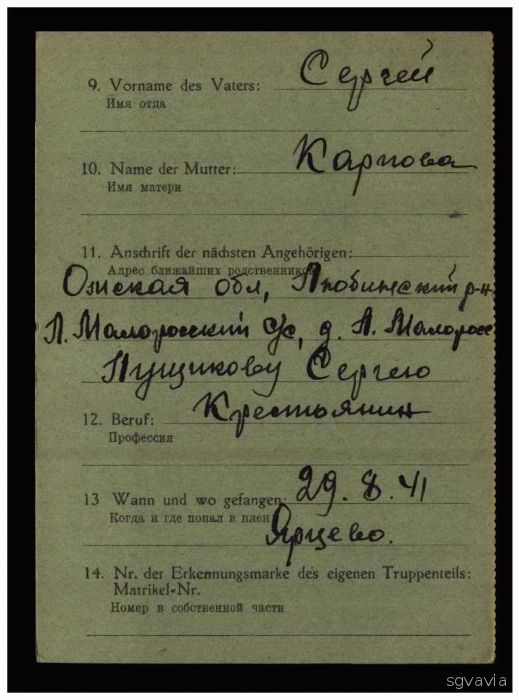 9. Vorname des Vaters: Сергей
Имя отца
10. Name der Mutter: Карпова
Имя матери
11. Anschrift der nächsten Angehörigen:
Адрес ближайших родственников
Омская обл, Любинский р-н
Л. Малоросский с/с, д. Л. Малоросс
Пущикову Сергею
12. Beruf: Крестьянин
Профессия
13 Wann und wo gefangen: 29.8.41
Когда и где попал в плен
Ярцево.
14. Nr. der Erkennungsmarke des eigenen Truppenteils:
Matrikel-Nr.
Номер в собственной части
sgvavia